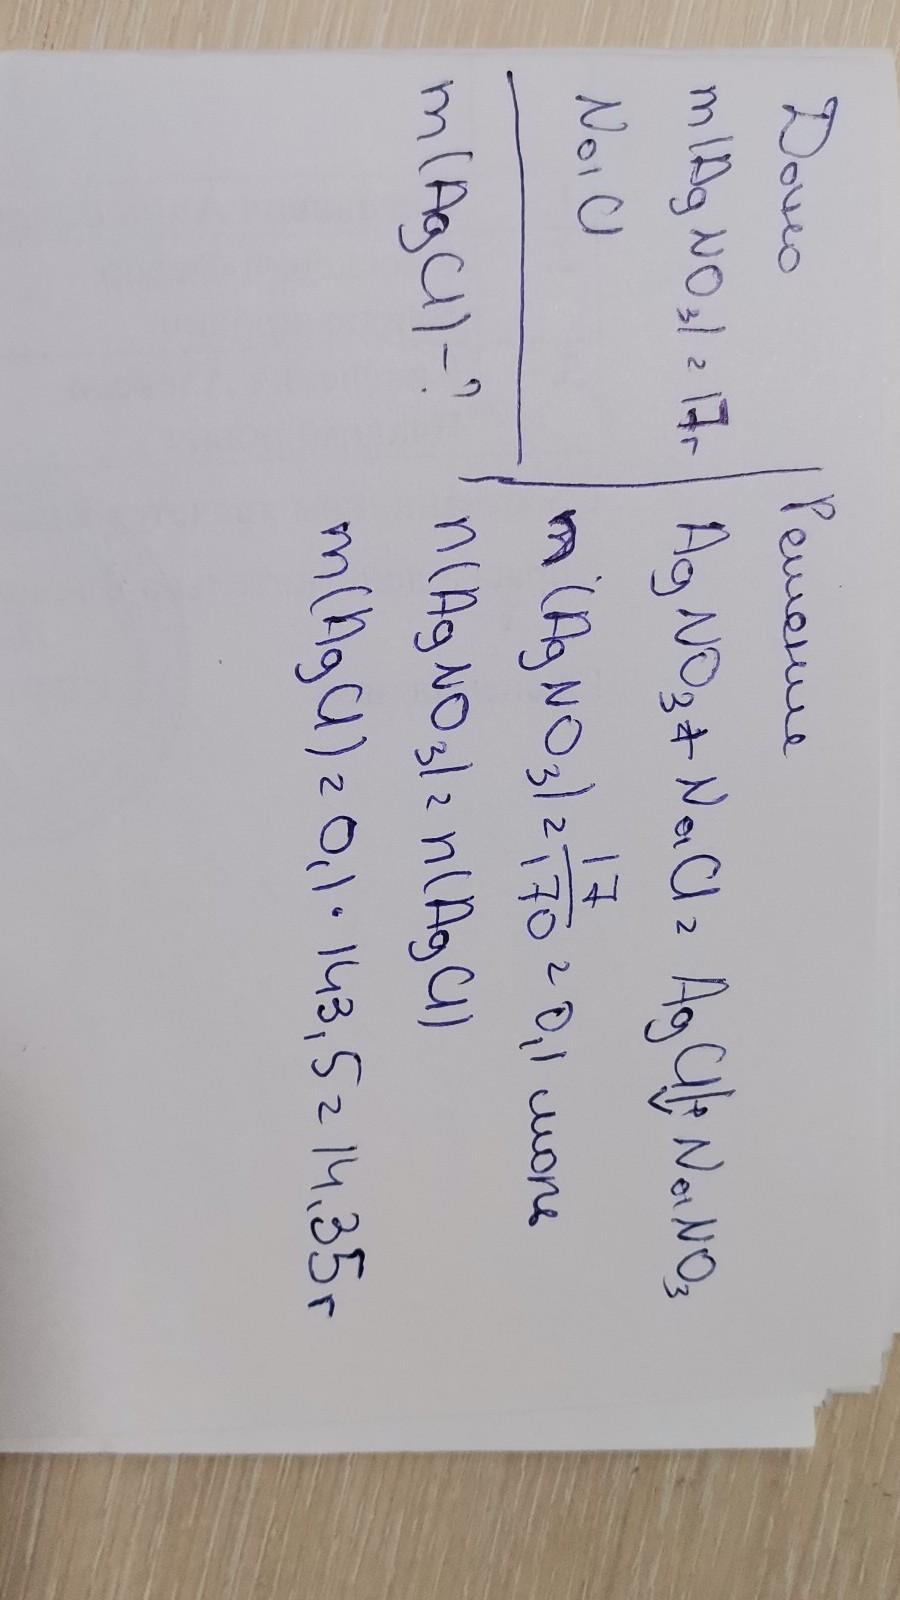 Дано
m(AgNO3)=17г
NaCl
m(AgCl)-?
Решение
AgNO3+NaCl=AgCl↓+NaNO3
n(AgNO3)=17/170=0,1 моль
n(AgNO3)=n(AgCl)
m(AgCl)=0,1·143,5=14,35г